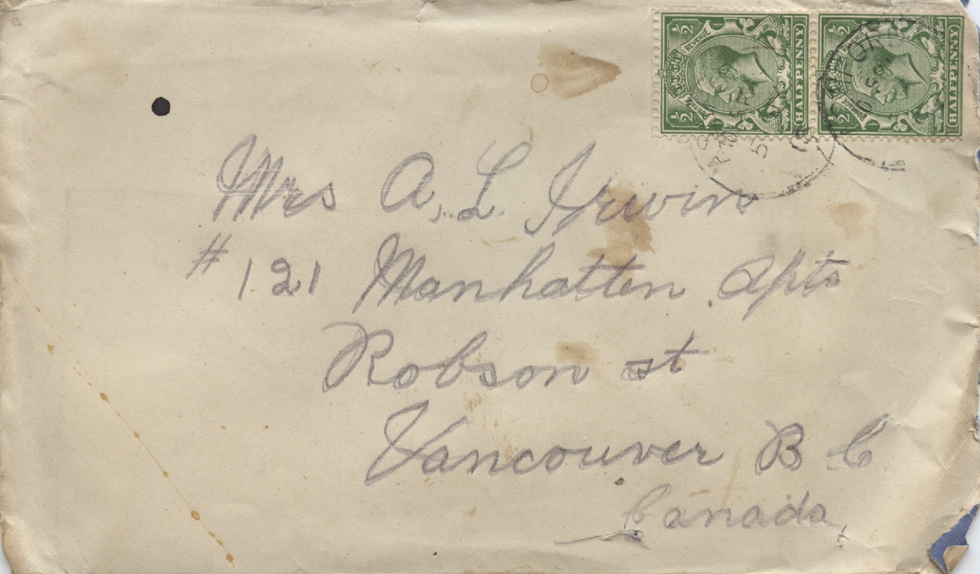 ½ REVENUE HALFPENNY ½
½ REVENUE HALFPENNY ½
Mrs A. L. Irwin
# 121 Manhatten Apts
Robson st
Vancouver B C
Canada,